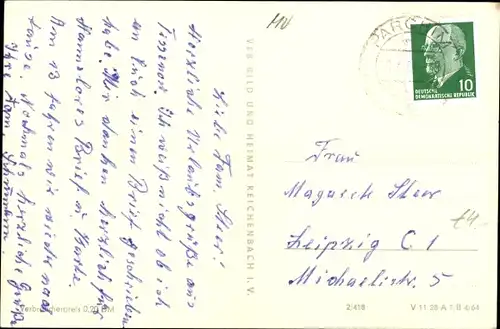 MV
PARCHIM
DEUTSCHE
DEMOKRATISCHE REPUBLIK
10
Liebe Fam. Steer!
Herzliche Urlaubsgrüße aus
ich weiß nicht ob ich
an Euch einen Brief geschrieben
habe. Wir danken herzlich für
Brief u. Karte.
Am 13 fahren wir wieder nach
Hause. Nochmals herzliche Grüße
Ihre Fam.
VEB BILD UND HEIMAT REICHENBACH I. V.
Frau
Steer
Leipzig C 1
Michaelisstr. 5
Verbraucherpreis 0,20 DM
2/418
V 11 28 A 1/B 4/64